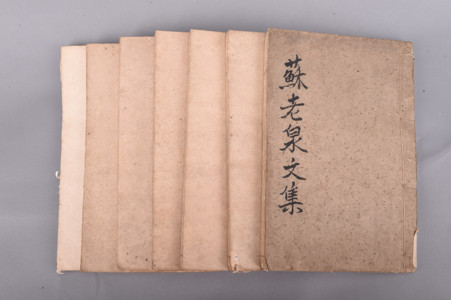 蘇老泉文集